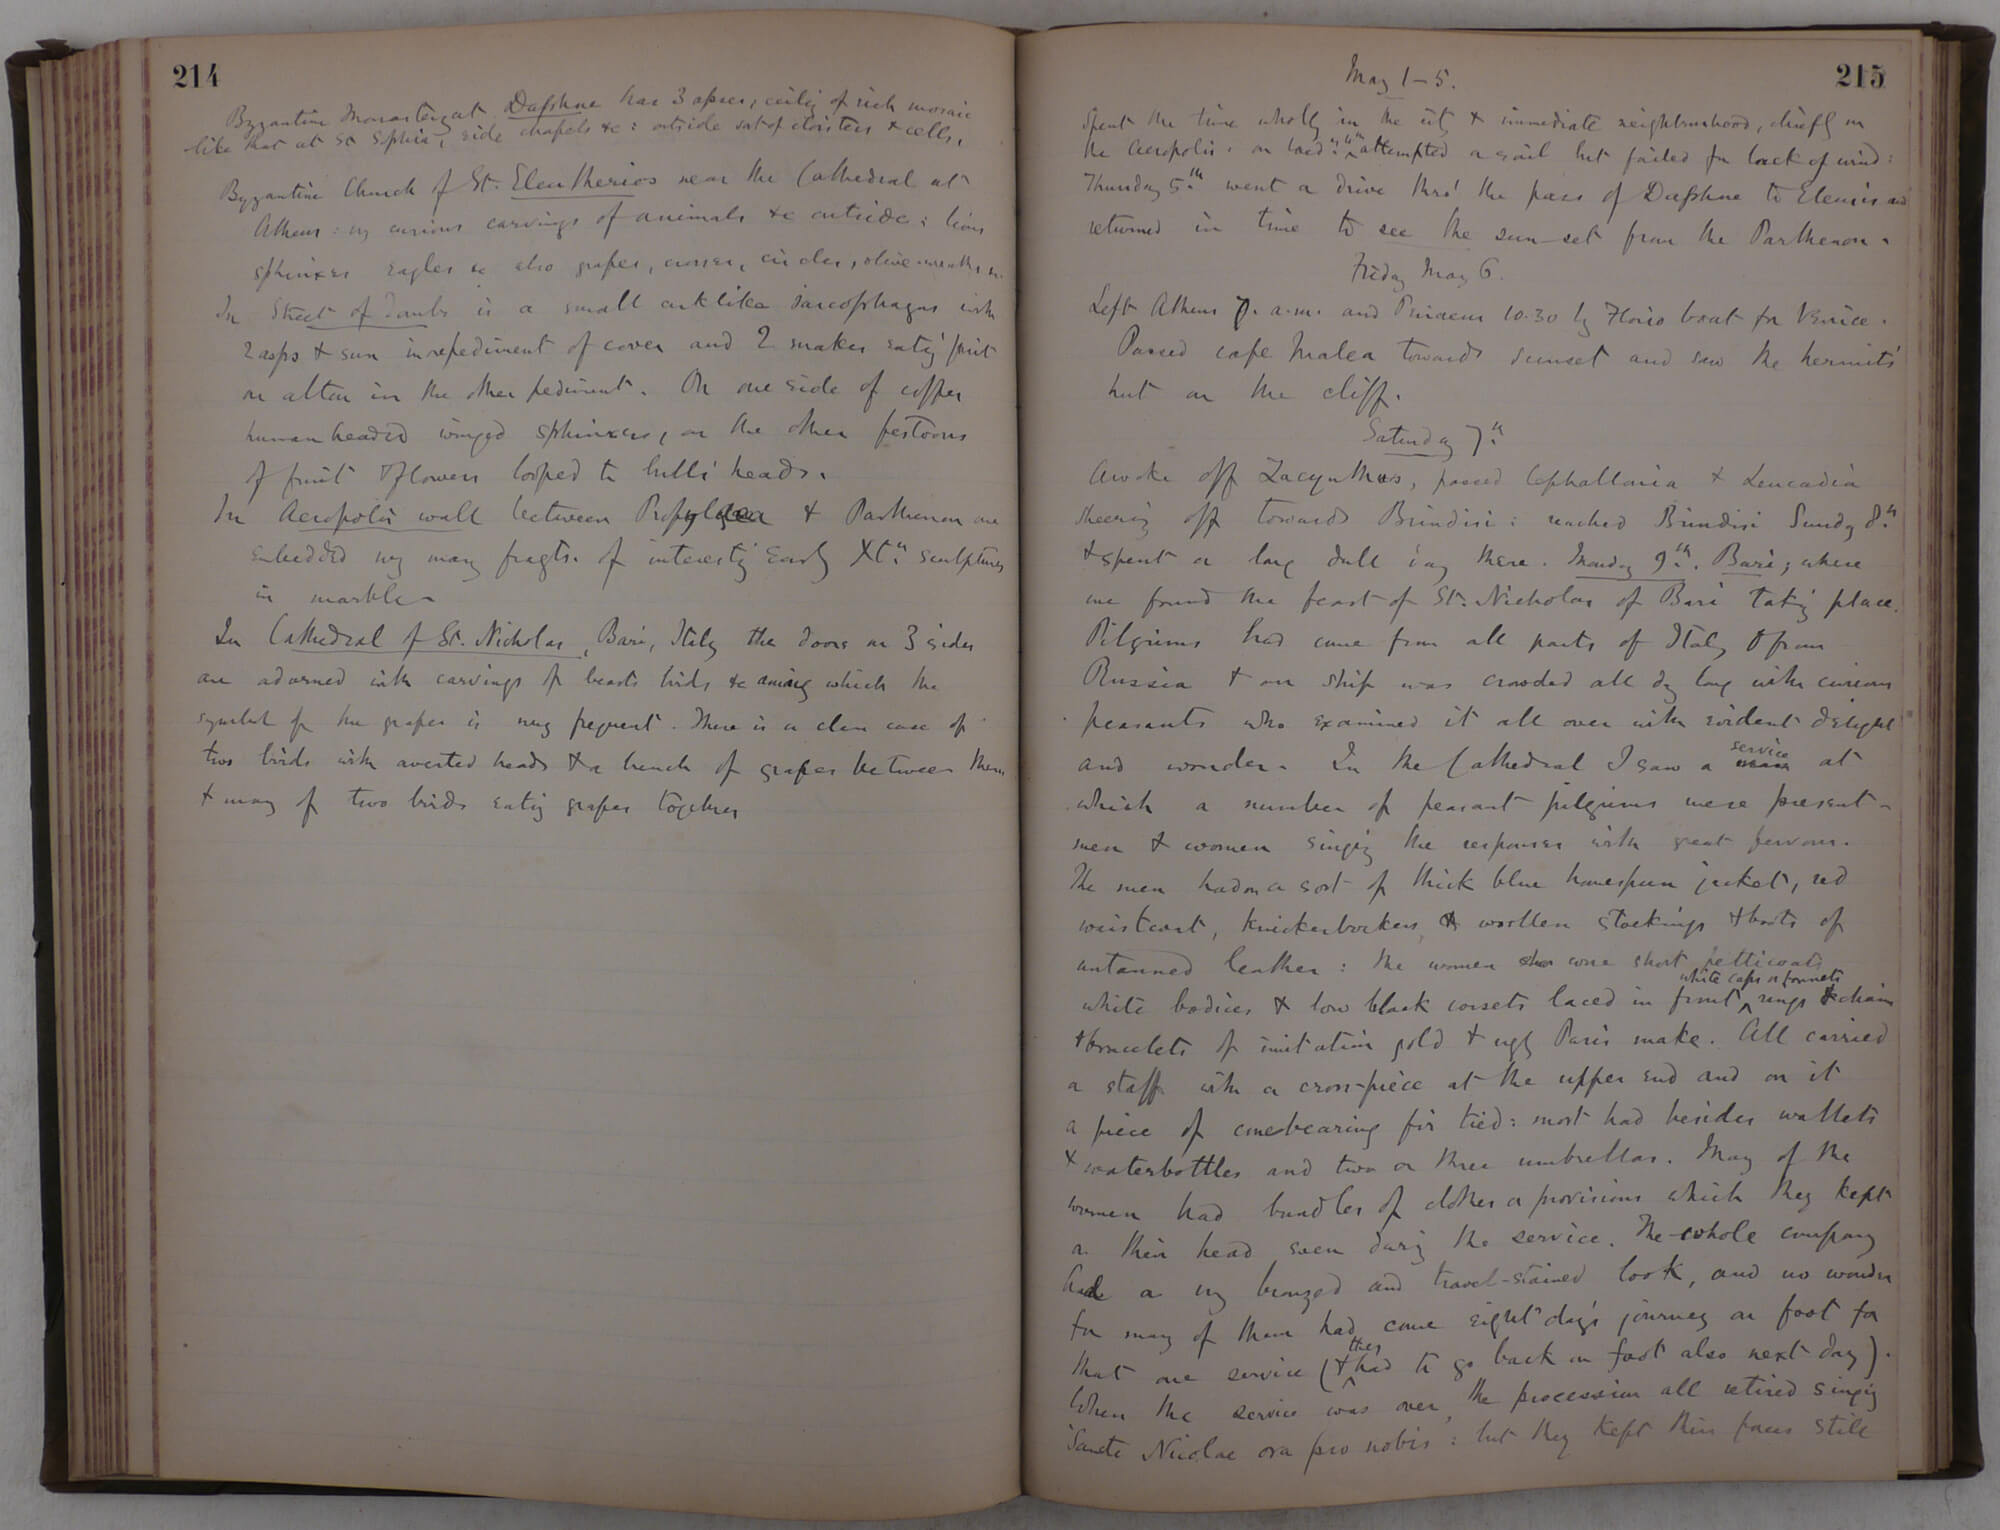 214
Byzantine Monastery at Daphne has 3 apses, ceilig of rich mosaic
like that at St Sophia, side chapels &c: outside sort of cloisters & cells.
Byzantine Church of St. Eleutherios near the Cathedral at
Athens: vy curious carvings of animals &c outside: lions
sphinxes eagles &c also grapes, crosses, circles, olive-wreaths &c.
In Street of Tombs is a small arklike sarcophagus with
2 asps & sun in one pediment of cover and 2 snakes eatig fruit
on altar in the other pediment. On one side of coffer
human headed winged sphinxes, on the other festoons
of fruit & flowers looped to bulls' heads.
In Acropolis wall between Propylaea & Parthenon are
embedded vy many fragts. of interestg early Xtn sculptures
in marble.
In Cathedral of St. Nicholas, Bari, Italy the doors on 3 sides
are adorned with carvings of beasts birds &c among which the
symbol of the grapes is very frequent. There is a clear case of
two birds with averted heads & a bunch of grapes between them
& many of two birds eatig grapes together
215
May 1-5.
Spent the time wholly in the city & immediate neighbourhood, chiefly on
the Acropolis: on Wed. 4th attempted a sail but failed for lack of wind:
Thursday 5th went a drive thro' the pass of Daphne to Eleusis and
returned in time to see the sun-set from the Parthenon.
Friday May 6.
Left Athens 7. a.m. and Piraeus 10.30 by Florio boat for Venice.
Passed cape Malea towards sunset and saw the hermit's
hut on the cliff.
Saturday 7th
Awoke off Zacynthus, passed Cephallonia & Leucadia
sheering off towards Brindisi: reached Brindisi Sunday 8th
& spent a long dull day there. Monday 9th. Bari; where
we found the feast of St. Nicholas of Bari takig place.
Pilgrims had come from all parts of Italy & from
Russia & our ship was crowded all dy long with curious
peasants who examined it all over with evident delight
and wonder. In the Cathedral I saw a service at
which a number of peasant pilgrims were present -
men & women singig the responses with great fervour.
The men had on a sort of thick blue homespun jacket, red
waistcoat, knickerbockers, & woollen stockings & boots of
untanned leather: the women wore short petticoats
white bodices & low black corsets laced in front, white caps or bonnets rings & chains
& bracelets of imitation gold & ugly Paris make. All carried
a staff with a cross-piece at the upper end and on it
a piece of conebearing fir tied: most had besides wallets
& waterbottles and two or three umbrellas. Many of the
women had bundles of clothes or provisions which they kept
on their head even durig the service. The whole company
had a vy bronzed and travel-stained look, and no wonder
for many of them had come eight day's journey on foot for
that one service (& they had to go back on foot also next day).
When the service was over, the procession all retired singig
'Sancte Nicolae ora pro nobis: but they kept their faces still